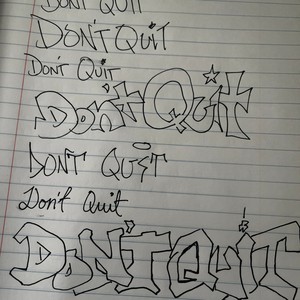 DON'T QUIT
DON'T QUIT
DON'T QUIT
Don't Quit
DONT QUIT
Don't Quit
DON'T QUIT